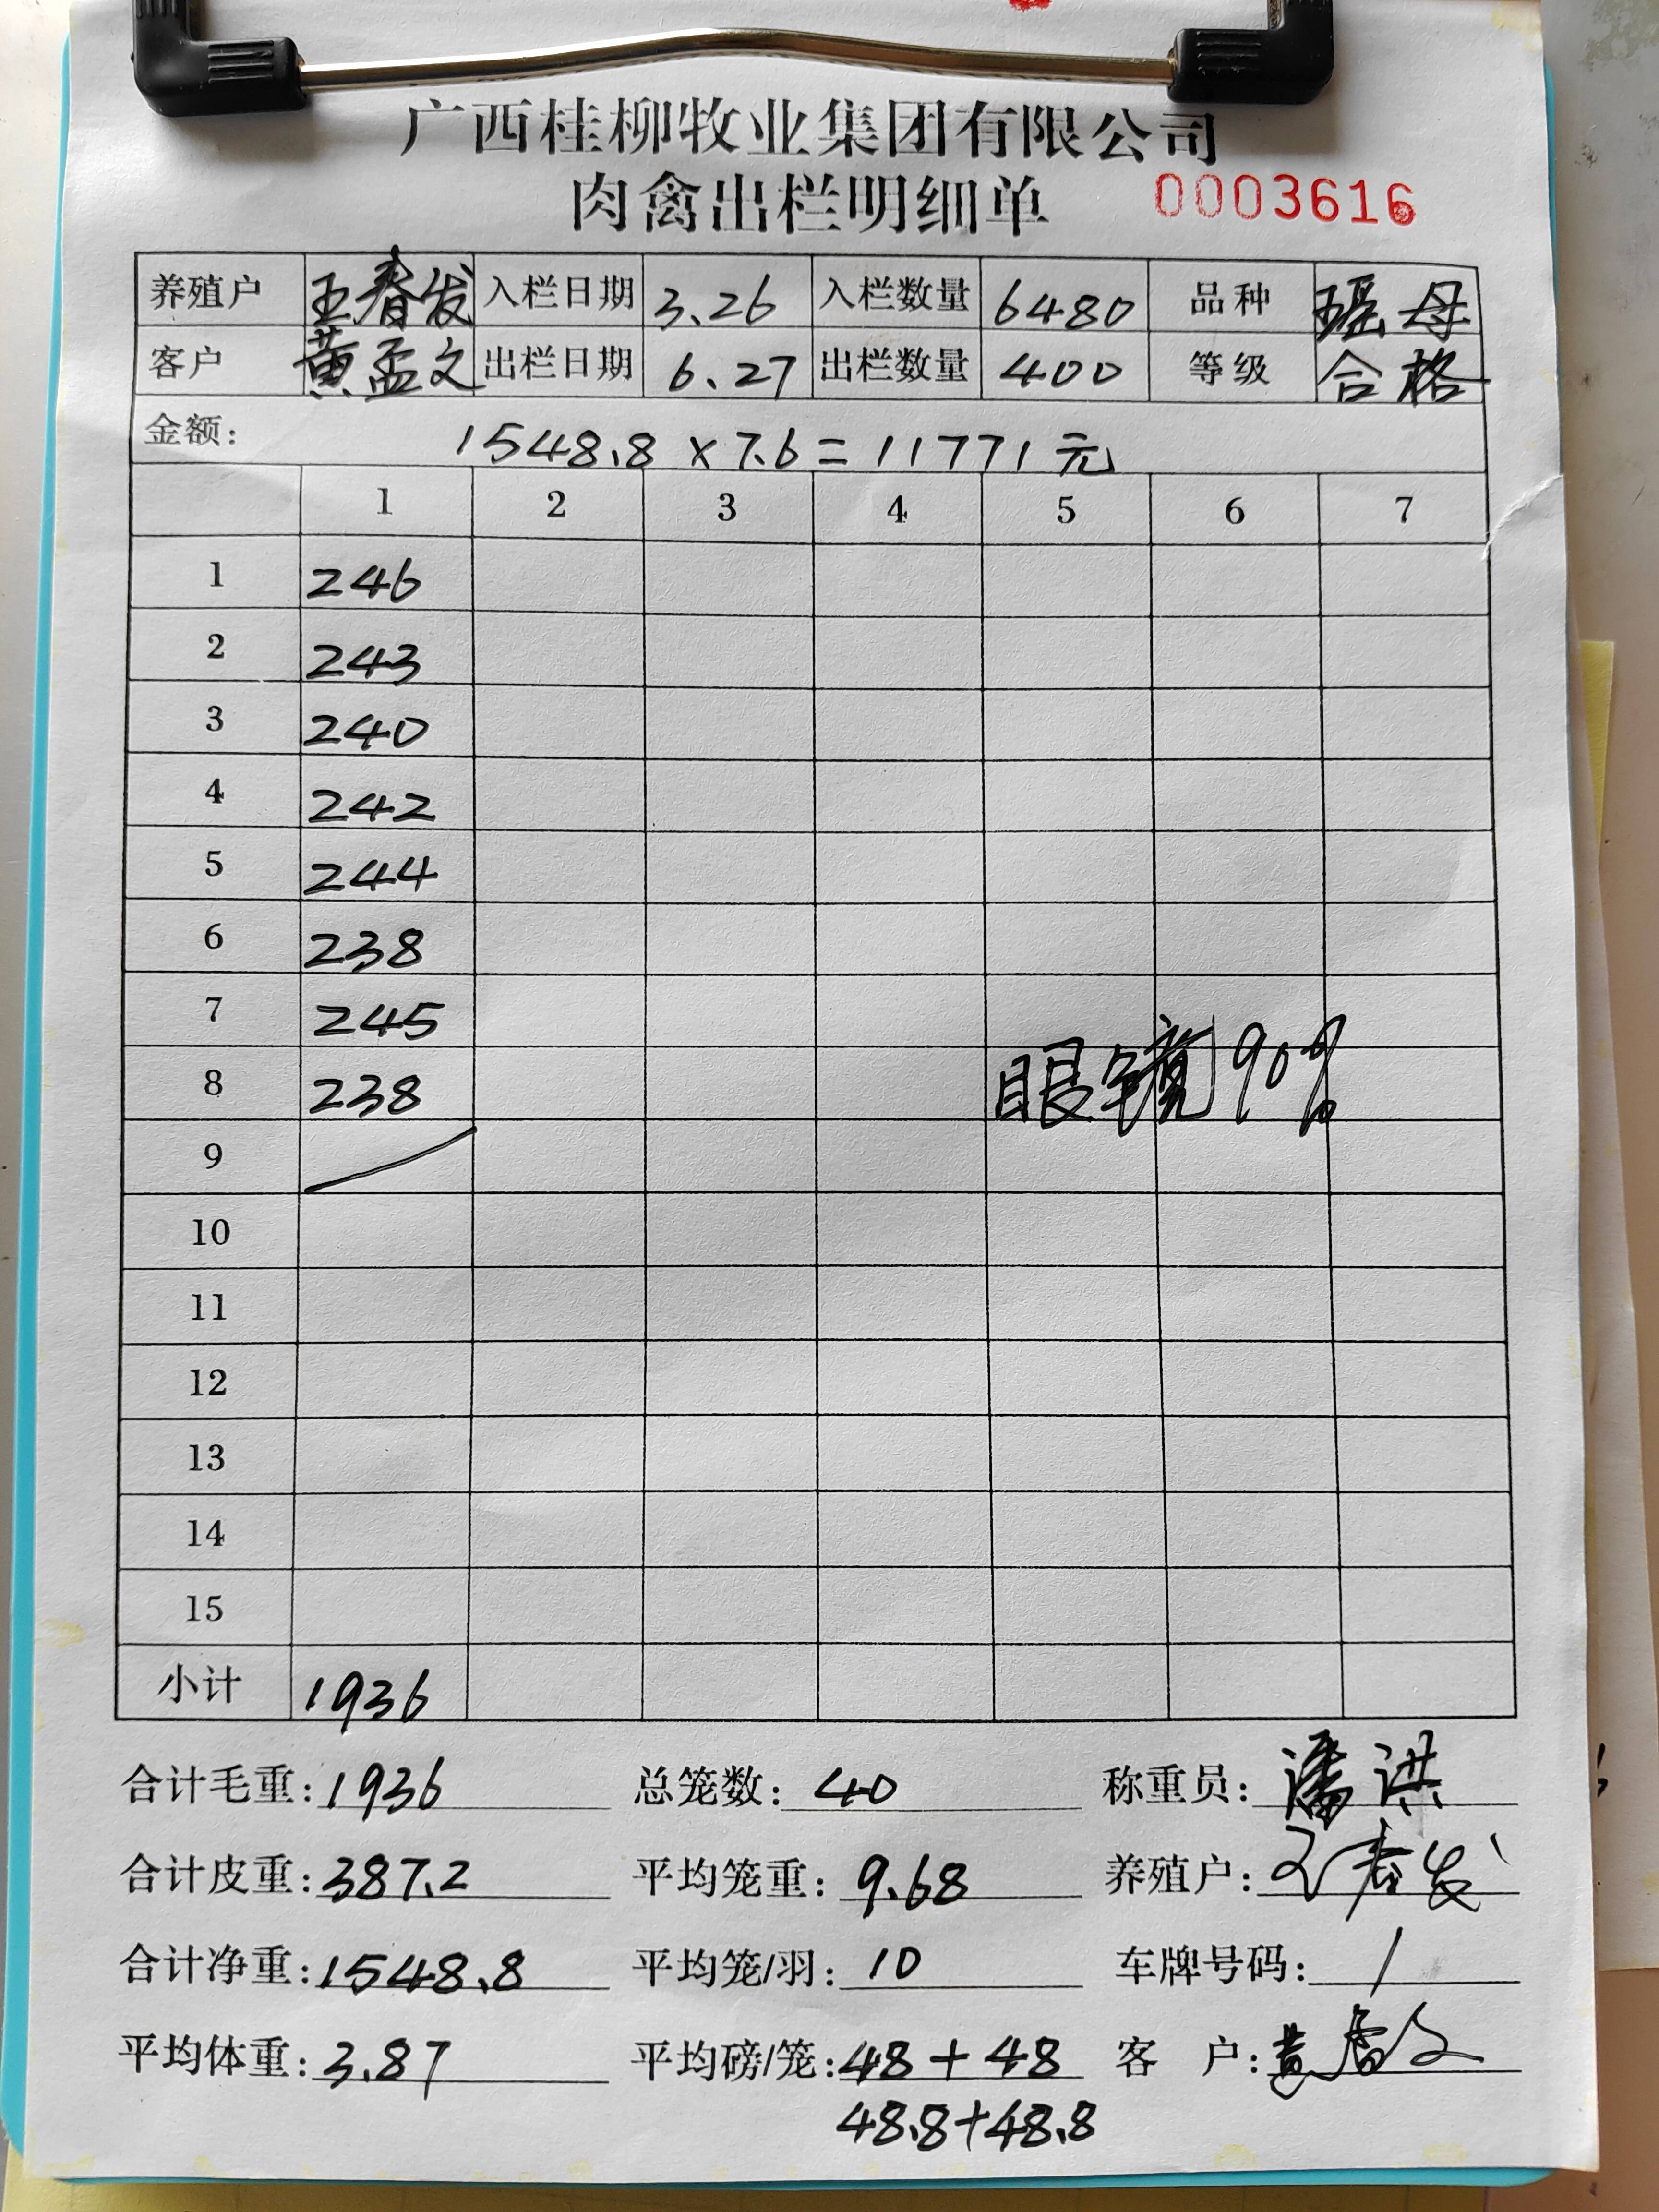 广西桂柳牧业集团有限公司
肉禽出栏明细单 0003616
养殖户 王春发 入栏日期 3.26 入栏数量 6480 品种 瑶母
客户 黄孟文 出栏日期 6.27 出栏数量 400 等级 合格
金额: 1548.8×7.6=11771元
1 2 3 4 5 6 7
1 246
2 243
3 240
4 242
5 244
6 238
7 245
8 238 眼镜90%
9
10
11
12
13
14
15
小计 1936
合计毛重: 1936 总笼数: 40 称重员: 潘洪
合计皮重: 387.2 平均笼重: 9.68 养殖户: 王春发
合计净重: 1548.8 平均笼/羽: 10 车牌号码: /
平均体重: 3.87 平均磅/笼: 48+48 客户:
48.8+48.8